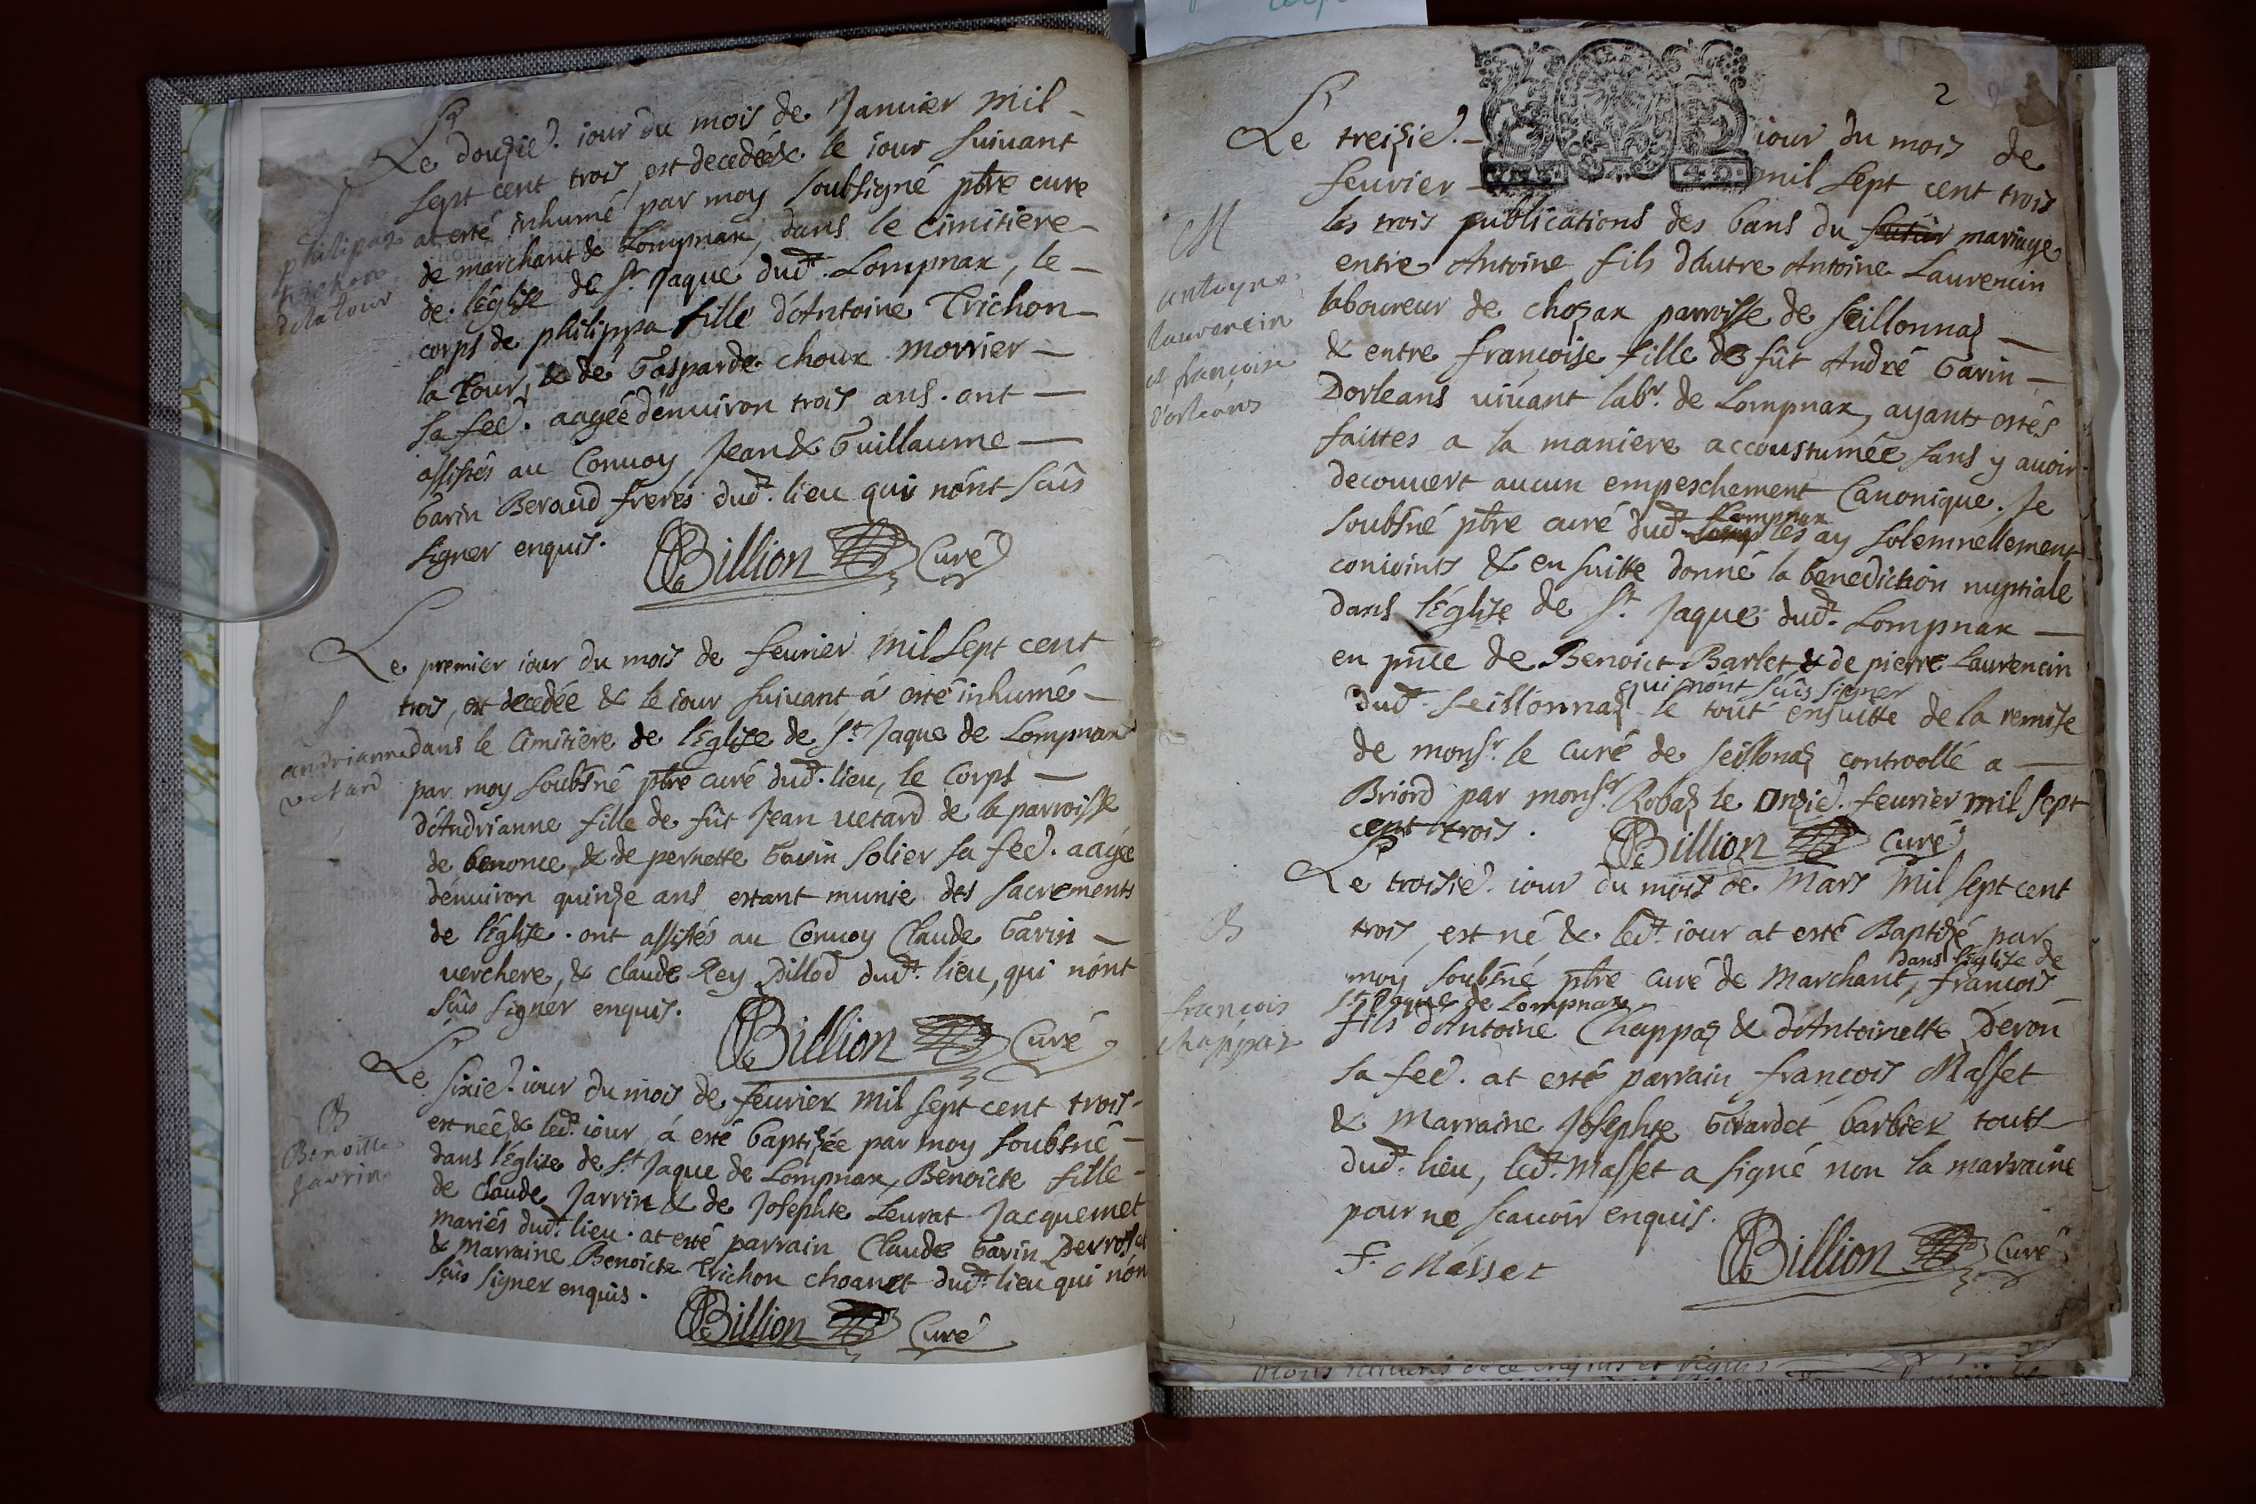 Le douzie. iour du mois de Januier mil
sept cent trois, est decedée & le iour suiuant
at esté inhumé par moy soubsigné ptre cure
de marchant & Lompnax, dans le Cimitiere
de l'église de St. Jaque dudt. Lompnax, le
corps de philippa fille d'Antoine Trichon
la Tour, & de Gasparde choux morrier
sa fee. aagée d'enuiron trois ans. ont
assistés au Conuoy Jean & Guillaume
Garin Beraud freres dudt. lieu qui n'ont sûs
signer enquis.
Billion Curé
philipaz
trichon
de la tour
Le premier iour du mois de feurier mil sept cent
trois, est decedée & le iour suiuant á esté inhumé
dans le Cimitiere de l'église de St. Jaque de Lompnax
par moy soubsné ptre curé dudt. lieu, le Corps
d'Andrianne fille de fût Jean uetard de la parroisse
de benonce, & de pernette Garin solier sa fee. aagée
d'enuiron quinze ans estant munie des sacrements
de l'église. ont assistés au Conuoy Claude Garin
uerchere, & claude Rey Dillod dudt. lieu, qui n'ont
sûs signer enquis.
Billion Curé
andrianne
vetard
Le sixie. iour du mois de feurier mil sept cent trois
est née & ledt. iour á esté baptisée par moy soubsné
dans l'église de St. Jaque de Lompnax, Benoicte fille
de Claude Jarrin & de Josephte Leurat Jacquemet
mariés dudt. lieu. at esté parrain Claude Garin Derroset
& marraine Benoicte Trichon choanet dudt. lieu qui n'on
sûs signer enquis.
Billion Curé
B
Benoitte
Jarrin
2
Le treizie. iour du mois de
feurier mil sept cent trois
les trois publications des bans du futur mariage
entre Antoine fils d'autre Antoine Laurencin
laboureur de chozax parroisse de seillonnaz
& entre françoise fille de fût André Garin
Dorleans uiuant labr. de Lompnax, ayants estés
faittes a la maniere accoustumée sans y auoir
decouuert aucun empeschement Canonique. Je
soubsné ptre curé dudt. Lompnax les ay solemnellement
conioints & en suitte donné la benediction nuptiale
dans l'Église de St. Jaque dudt. Lompnax
en pnce de Benoict Barlet & de pierre Laurencin
dudt. seillonnaz qui n'ont sûs signer le tout ensuitte de la remise
de monsr. le curé de seillonaz controollé a
Briord par monsr. Robaz le onzie. feurier mil sept
cent trois. Billion Curé
M
antoyne
laurencin
et francoise
dorleans
Le troisie. iour du mois de Mars mil sept cent
trois, est né & ledt. iour at esté Baptizé par
moy soubsné ptre curé de Marchant, dans l'église de
St Jaque de Lompnax françois
fils d'Antoine Chappaz & d'Antoinette Deron
sa fee. at esté parrain françois Masset
& marraine Josephte Girardet barbier touts
dudt. lieu, ledt. Masset a signé non la marraine
pour ne scauoir enquis.
F. Masset Billion Curé
B
françois
chappaz